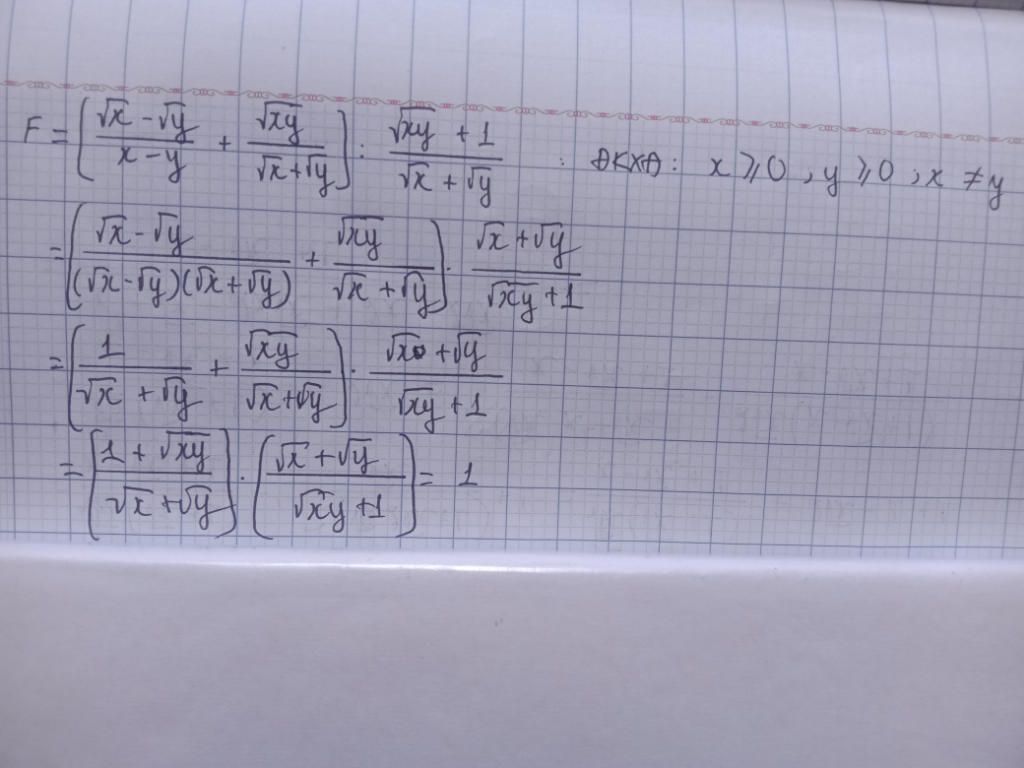 F = [(√x - √y)/(x - y) + √xy/(√x + √y)] : (√xy + 1)/(√x + √y) : ĐKXĐ: x ⩾ 0, y ⩾ 0, x ≠ y
= [(√x - √y)/((√x - √y)(√x + √y)) + √xy/(√x + √y)] . (√x + √y)/(√xy + 1)
= [1/(√x + √y) + √xy/(√x + √y)] . (√x + √y)/(√xy + 1)
= [(1 + √xy)/(√x + √y)] . [(√x + √y)/(√xy + 1)] = 1